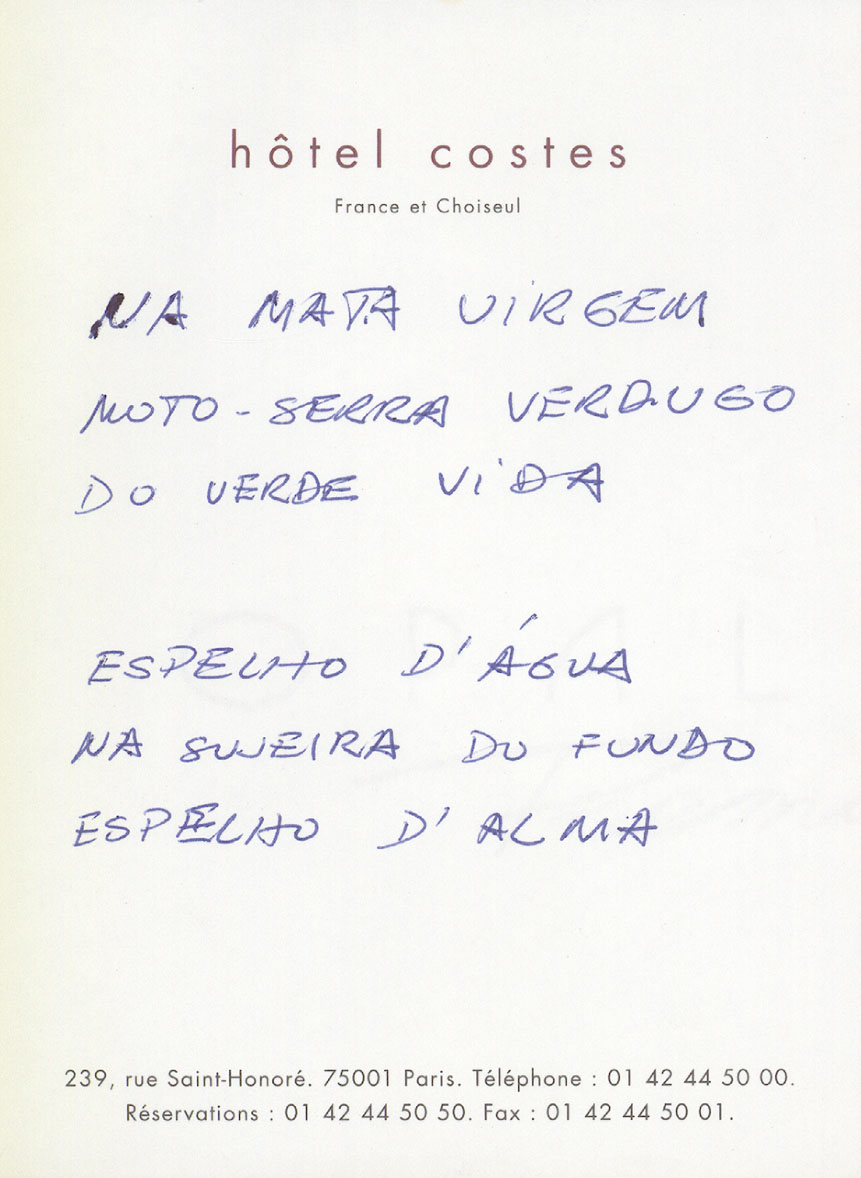 hôtel costes
France et Choiseul
NA MATA VIRGEM
MOTO-SERRA VERDUGO
DO VERDE VIDA
ESPELHO D'ÁGUA
NA SUJEIRA DO FUNDO
ESPELHO D'ALMA
239, rue Saint-Honoré. 75001 Paris. Téléphone : 01 42 44 50 00.
Réservations : 01 42 44 50 50. Fax : 01 42 44 50 01.